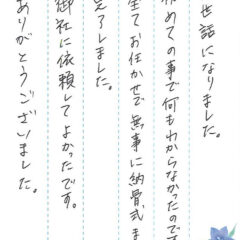 世話になりました。
めての事で何もわからなかったのです
全てお任せで無事に納骨式ま
完了しました。
御社に依頼してよかったです。
ありがとうございました。